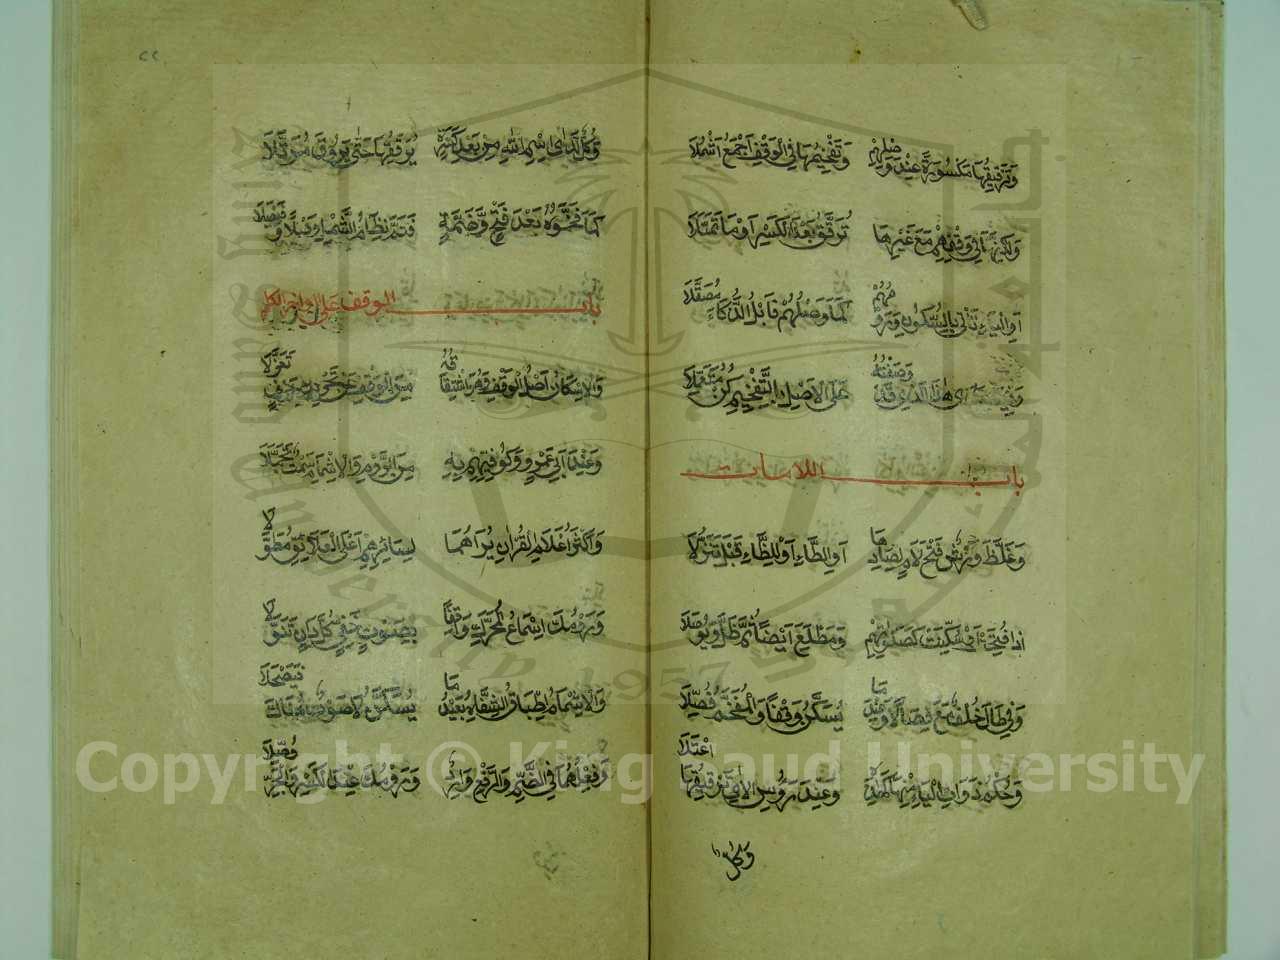 وَتَرْقِيقُهَا مَكْسُورَةً عِنْدَ وَصْلِهِمْ وَتَفْخِيمُهَا فِي الْوَقْفِ أَجْمَعُ أَشْمُلَا
وَلَكِنَّهَا فِي وَقْفِهِمْ مَعَ غَيْرِهَا تُرَقَّقُ بَعْدَ الْكَسْرِ أَوْ مَا تَمَيَّلَا
أَوِ الْيَاءِ تَأْتِي بِالسُّكُونِ وَرَوْمُهُمْ كَمَا وَصْلِهِمْ فَابْلُ الذَّكَاءَ مُصَقَّلَا
وَفِيمَا عَدَا هَذَا الَّذِي قَدْ وَصَفْتُهُ عَلَى الْأَصْلِ بِالتَّفْخِيمِ كُنْ مُتَعَمِّلَا
باب اللامات
وَغَلَّظَ وَرْشٌ فَتْحَ لَامٍ لِصَادِهَا أَوِ الطَّاءِ أَوْ لِلظَّاءِ قَبْلُ تَنَزُّلَا
إِذَا فُتِحَتْ أَوْ سُكِّنَتْ كَصَلَاتِهِمْ وَمَطْلَعِ أَيْضًا ثُمَّ ظَلَّ وَيُوصَلَا
وَفِي طَالَ خُلْفٌ مَعْ فِصَالًا وَعِنْدَمَا يُسَكَّنُ وَقْفًا وَالْمُفَخَّمُ فُضِّلَا
وَحُكْمُ ذَوَاتِ الْيَاءِ مِنْهَا كَهَذِهِ وَعِنْدَ رُؤُسِ الْآيِ تَرْقِيقُهَا اعْتَلَا
وكل
٢٢
وَكُلٌّ لَدَى اسْمِ اللهِ مِنْ بَعْدِ كَسْرَةٍ يُرَقِّقُهَا حَتَّى يَرُوقَ مُرَتَّلَا
كَمَا فَخَّمُوهُ بَعْدَ فَتْحٍ وَضَمَّةٍ فَتَمَّ نِظَامُ الشَّمْلِ وَصْلًا وَفَيْصَلَا
باب الوقف على اواخر الكلم
وَالْإِسْكَانُ أَصْلُ الْوَقْفِ وَهْوَ اشْتِقَاقُهُ مِنَ الْوَقْفِ عَنْ تَحْرِيكِ حَرْفٍ تَعَزَّلَا
وَعِنْدَ أَبِي عَمْرٍو وَكُوفِيِّهِمْ بِهِ مِنَ الرَّوْمِ وَالْإِشْمَامِ سَمْتٌ تَجَمَّلَا
وَأَكْثَرُ أَعْلَامِ الْقُرْآنِ يَرَاهُمَا لِسَائِرِهِمْ أَعْلَى الْعَلَائِقِ مِطْوَلَا
وَرَوْمُكَ إِسْمَاعُ الْمُحَرَّكِ وَاقِفًا بِصَوْتٍ خَفِيٍّ كُلَّ دَانٍ تَنَوَّلَا
وَالْإِشْمَامُ إِطْبَاقُ الشِّفَاهِ بُعَيْدَ مَا يُسَكَّنُ لَا صَوْتٌ هُنَاكَ فَيَصْحَلَا
وَفِعْلُهُمَا فِي الضَّمِّ وَالرَّفْعِ وَارِدٌ وَرَوْمُكَ عِنْدَ الْكَسْرِ وَالْجَرِّ وُصِّلَا
Copyright © King Saud University
1957